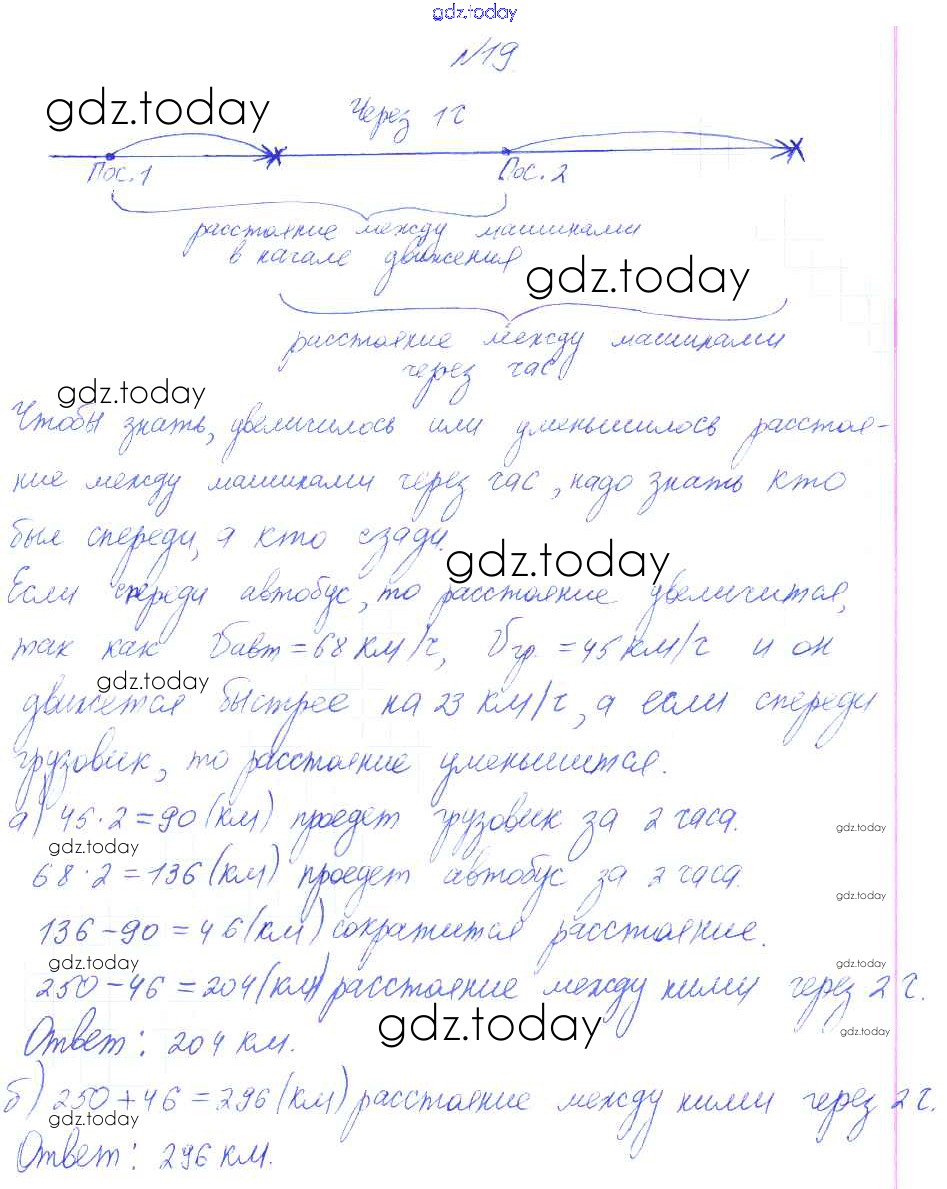 gdz.today
№19
gdz.today
Через 1 ч
Пос. 1 Пос. 2
расстояние между машинами
в начале движения
gdz.today
расстояние между машинами
через час
gdz.today
Чтобы знать, увеличилось или уменьшилось расстоя-
ние между машинами через час, надо знать кто
был спереди, а кто сзади.
gdz.today
Если спереди автобус, то расстояние увеличится,
так как Vавт = 68 км/ч, Vгр. = 45 км/ч и он
gdz.today
движется быстрее на 23 км/ч, а если спереди
грузовик, то расстояние уменьшится.
а) 45 · 2 = 90 (км) проедет грузовик за 2 часа.
gdz.today gdz.today
68 · 2 = 136 (км) проедет автобус за 2 часа.
gdz.today
136 - 90 = 46 (км) сократится расстояние.
gdz.today gdz.today
250 - 46 = 204 (км) расстояние между ними через 2 ч.
gdz.today gdz.today
Ответ: 204 км.
б) 250 + 46 = 296 (км) расстояние между ними через 2 ч.
gdz.today
Ответ: 296 км.